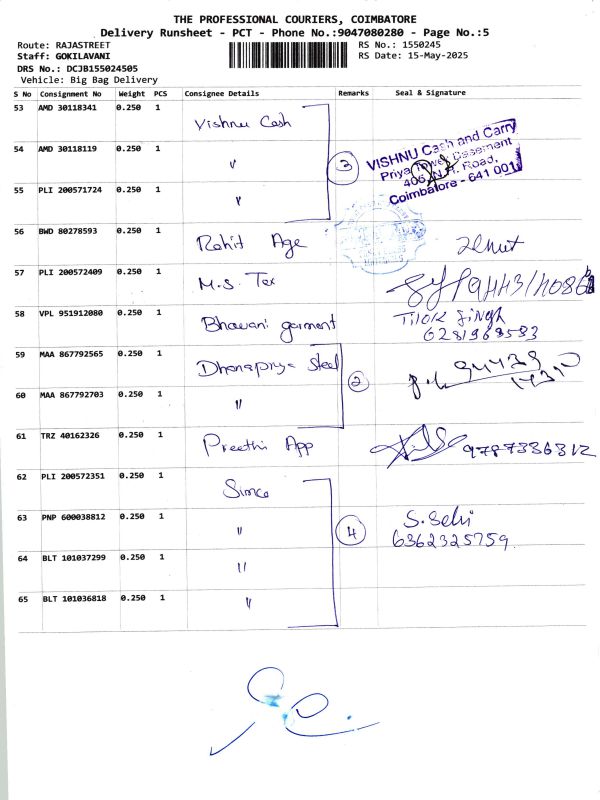 THE PROFESSIONAL COURIERS, COIMBATORE
Delivery Runsheet - PCT - Phone No.:9047080280 - Page No.:5
Route: RAJASTREET
RS No.: 1550245
Staff: GOKILAVANI
RS Date: 15-May-2025
DRS No.: DCJB155024505
Vehicle: Big Bag Delivery
S No Consignment No Weight PCS Consignee Details Remarks Seal & Signature
53 AMD 30118341 0.250 1 Vishnu Cash
54 AMD 30118119 0.250 1 〃
3
VISHNU Cash and Carry
Priya Tower Basement
406, N.H. Road,
Coimbatore - 641 001
55 PLI 200571724 0.250 1 〃
56 BWD 80278593 0.250 1 Rohit Age
57 PLI 200572409 0.250 1 M.S. Tex
58 VPL 951912080 0.250 1 Bhavani garment Tilok Singh
6281968583
59 MAA 867792565 0.250 1 Dhanapriya Steel
2
60 MAA 867792703 0.250 1 〃
61 TRZ 40162326 0.250 1 Preethi App 9787336312
62 PLI 200572351 0.250 1 Simco
63 PNP 600038812 0.250 1 〃 4 S. Selvi
6362325759
64 BLT 101037299 0.250 1 〃
65 BLT 101036818 0.250 1 〃